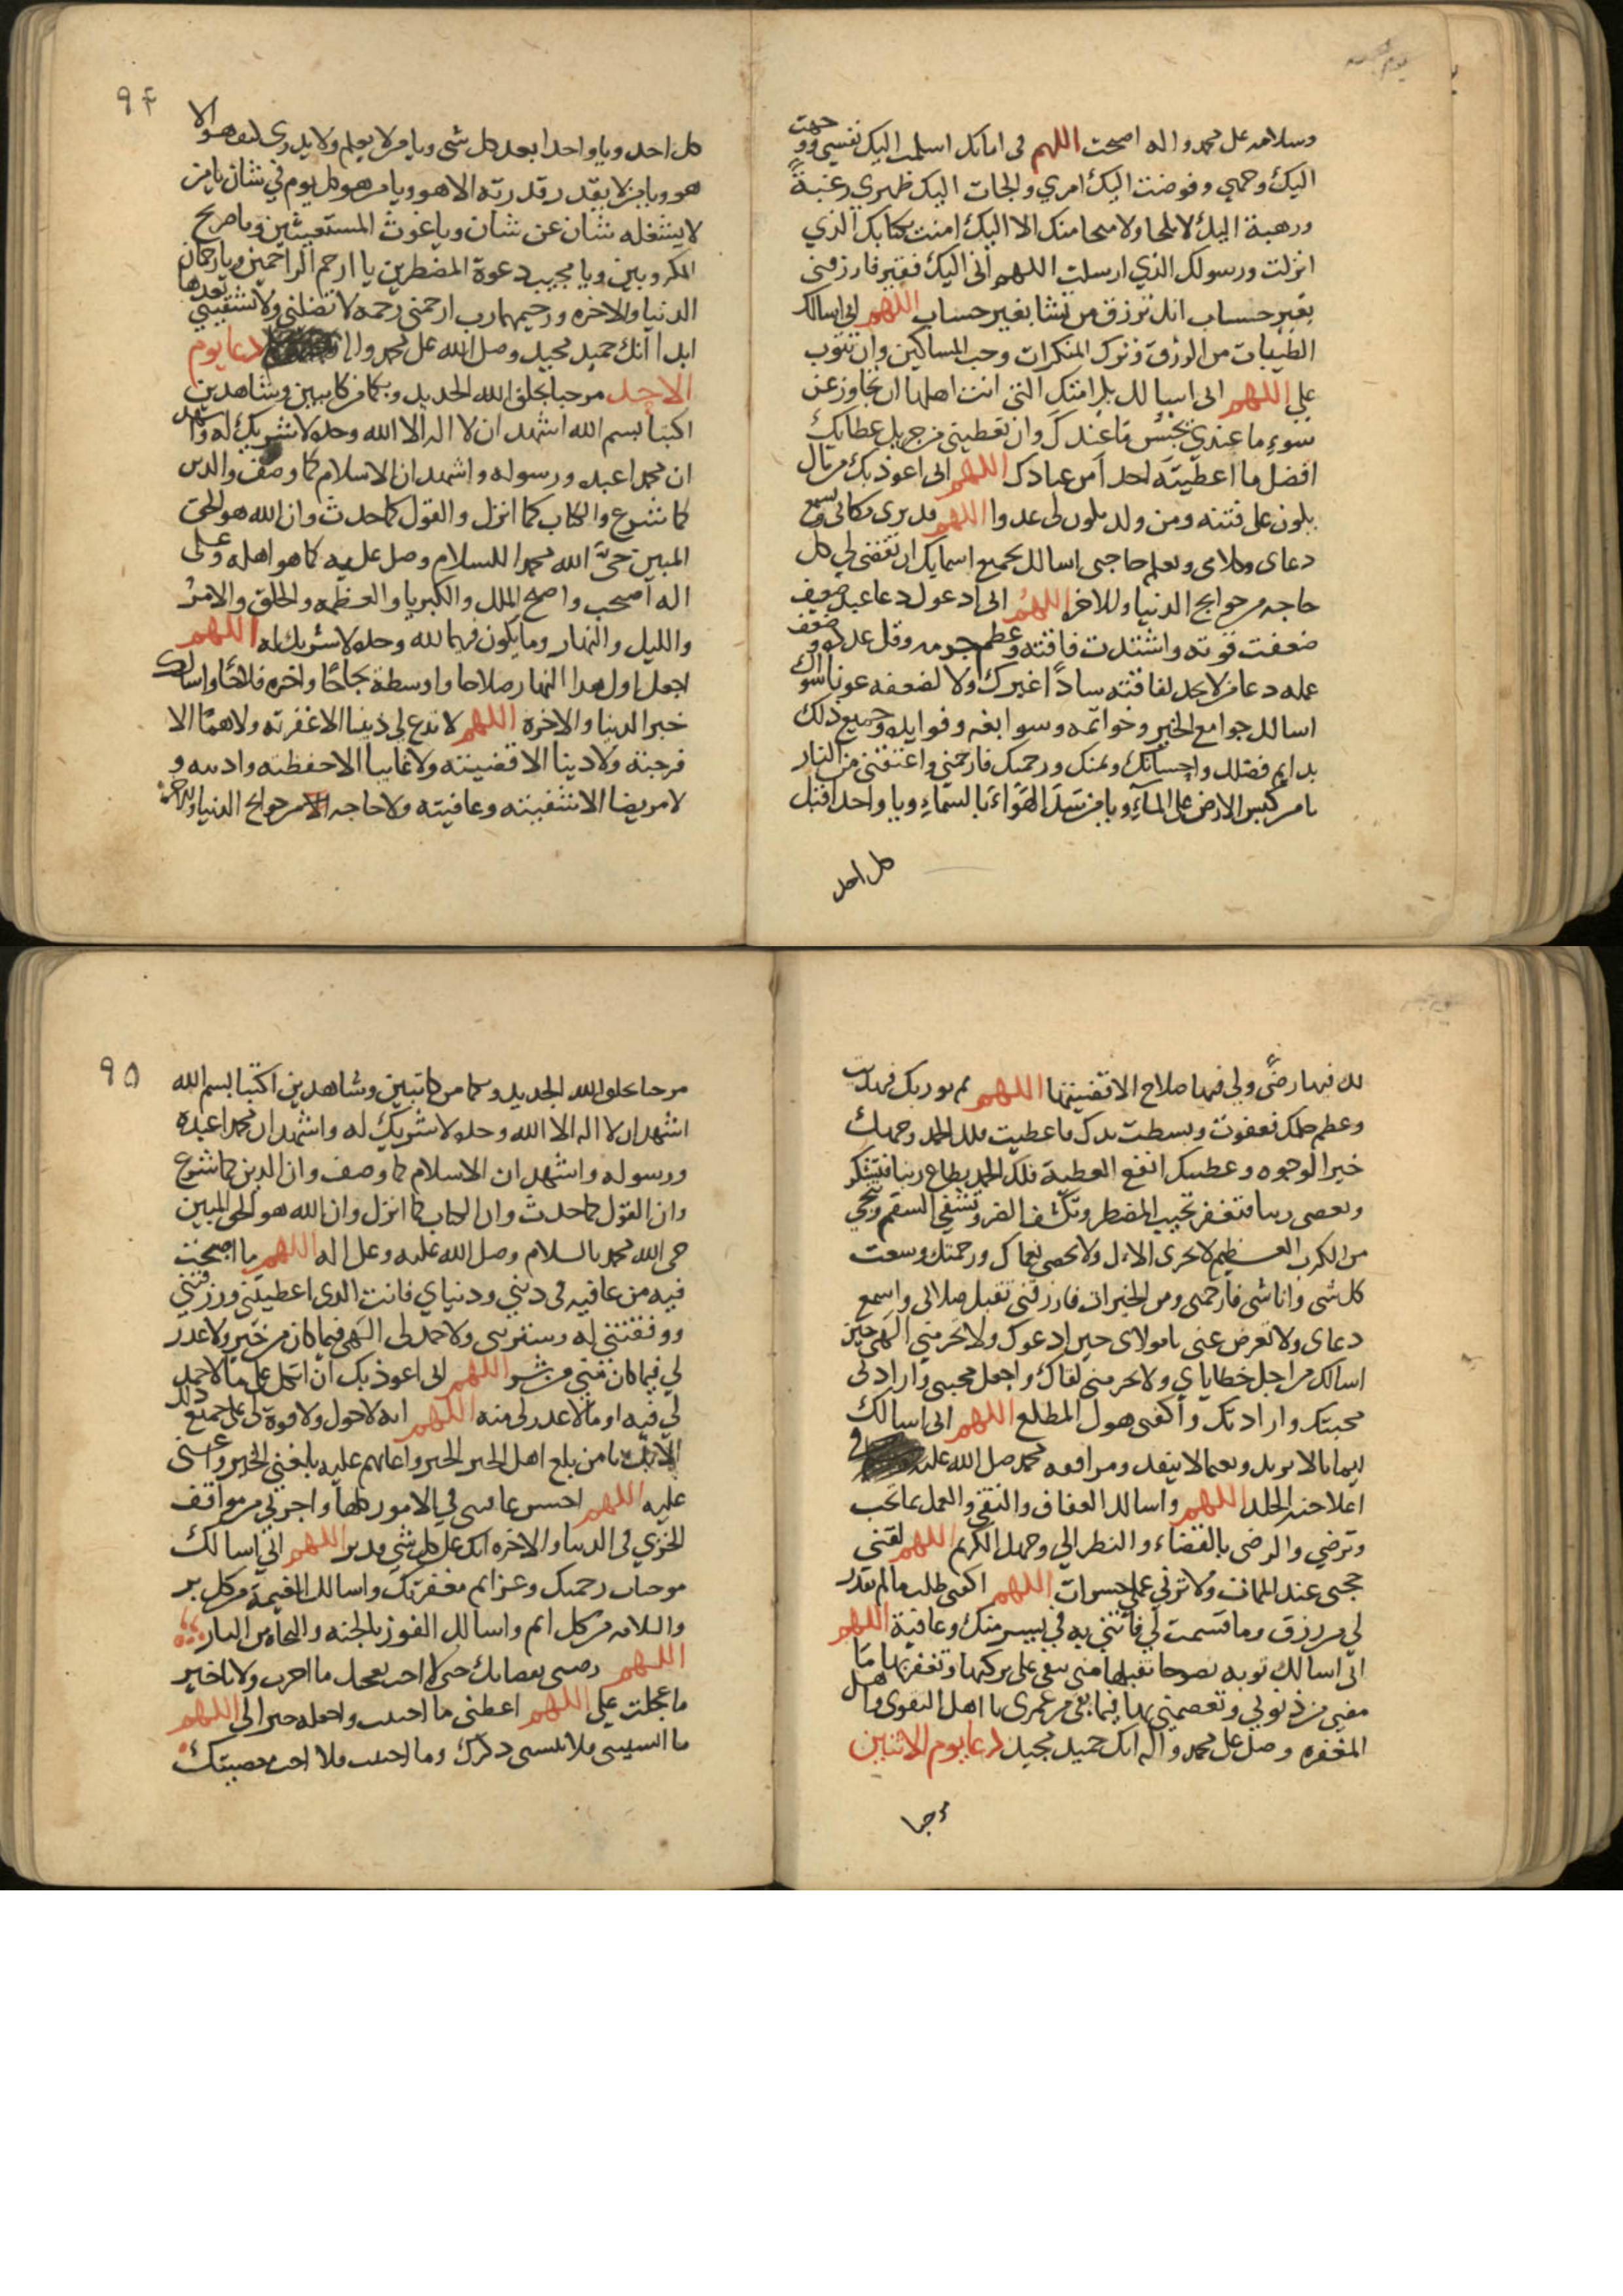 وسلامه على محمد واله اصبحت اللهم فى امانك اسلمت اليك نفسي ووجهت
اليك وجهي وفوضت اليك امري والجات اليك ظهري رغبةً
ورهبة اليك لا ملجا ولا منجا منك الا اليك امنت بكتابك الذي
انزلت ورسولك الذي ارسلت اللهم انى اليك فقير فارزقنى
بغير حساب انك ترزق من تشا بغير حساب اللهم انى اسالك
الطيبات من الرزق وترك المنكرات وحب المساكين وان تتوب
على اللهم انى اسالك بكرامتك التى انت اهلها ان تجاوز عن
سوء ما عندي بحسن ما عندك وان تعطينى من جزيل عطايك
افضل ما اعطيته احدا من عبادك اللهم انى اعوذ بك من مال
يكون على فتنه ومن ولد يكون لى عدوا اللهم قد ترى مكانى وتسمع
دعاى وكلامى وتعلم حاجتى اسالك بجميع اسمايك ان تقضى لي كل
حاجه من حوايج الدنيا والاخره اللهم انى ادعوك دعا عبد ضعيف
ضعفت قوته واشتدت فاقته وعظم جرمه وقل عدده وضعف
عمله دعا من لا يجد لفاقته سادًّا غيرك ولا لضعفه عونا سواك
اسالك جوامع الخير وخواتمه وسوابغه وفوايده وجميع ذلك
بدايم فضلك واحسانك وبمنك ورحمتك فارحمنى واعتقنى من النار
يا من كبس الارض على الماء ويا من سد الهواء بالسماء ويا واحدا قبل
كل احد
٩٤
كل احد ويا واحدا بعد كل شى ويا من لا يعلم ولا يدرى كيف هو الا
هو ويا من لا يقدر قدرته الا هو ويا من هو كل يوم في شان يا من
لا يشغله شان عن شان ويا غوث المستغيثين ويا صريخ
المكروبين ويا مجيب دعوة المضطرين يا ارحم الراحمين ويا رحمان
الدنيا والاخره ورحيمهما رب ارحمنى رحمه لا تضلنى ولا تشقينى بعدها
ابدا انك حميد مجيد وصل الله على محمد واله دعا يوم
الاحد مرحبا بخلق الله الجديد وبكما من كاتبين وشاهدين
اكتبا بسم الله اشهد ان لا اله الا الله وحده لا شريك له واشهد
ان محمدا عبده ورسوله واشهد ان الاسلام كما وصف والدين
كما شرع والكتاب كما انزل والقول كما حدث وان الله هو الحق
المبين حيَّ الله محمدا بالسلام وصل عليه كما هو اهله وعلى
اله اصبحت واصبح الملك والكبريا والعظمه والخلق والامر
والليل والنهار وما يكون فيهما لله وحده لا شريك له اللهم
اجعل اول هذا النهار صلاحا واوسطه نجاحًا واخره فلاحًا واسالك
خير الدنيا والاخرة اللهم لا تدع لي ذنبا الا غفرته ولا همًا الا
فرجته ولا دينا الا قضيته ولا غايبا الا حفظته واديته و
لا مريضا الا شفيته وعافيته ولا حاجه من حوايج الدنيا والاخرة
لك فيها رضًى ولي فيها صلاح الا قضيتها اللهم تم نورك فهديت
وعظم حلمك فعفوت وبسطت يدك فاعطيت فلك الحمد وجهك
خير الوجوه وعطيتك انفع العطية فلك الحمد يطاع ربنا فتشكر
ويعصى ربنا فتغفر تجيب المضطر وتكشف الضر وتشفى السقيم وتنجي
من الكرب العظيم لا يجزى الاءك ولا يحصى نعماك ورحمتك وسعت
كل شى وانا شى فارحمنى ومن الخيرات فارزقنى تقبل صلاتى واسمع
دعاى ولا تعرض عنى يا مولاى حين ادعوك ولا تحرمنى الهى حين
اسالك من اجل خطاياي ولا تحرمنى لقاك واجعل محبتى وارادتى
محبتك وارادتك واكفنى هول المطلع اللهم انى اسالك
ايمانا لا يرتد ونعيما لا ينفد ومرافقه محمد صل الله عليه فى
اعلا جنه الخلد اللهم واسالك العفاف والتقى والعمل بما تحب
وترضي والرضى بالقضاء والنظر الى وجهك الكريم اللهم لقنى
حجتى عند الممات ولا ترنى عملى حسرات اللهم اكفنى طلب ما لم تقدر
لي من رزق وما قسمت لي فأتنى به في يسر منك وعافية اللهم
انى اسالك توبه نصوحا تقبلها منى تبقى على بركتها وتغفر بها ما
مضى من ذنوبى وتعصمنى بها فيما بقى من عمرى يا اهل التقوى واهل
المغفره وصل على محمد واله انك حميد مجيد دعا يوم الاثنين
مرحبا
٩٥
مرحبا بخلق الله الجديد وبكما من كاتبين وشاهدين اكتبا بسم الله
اشهد ان لا اله الا الله وحده لا شريك له واشهد ان محمدا عبده
ورسوله واشهد ان الاسلام كما وصف وان الدين كما شرع
وان القول كما حدث وان الكتاب كما انزل وان الله هو الحق المبين
حى الله محمد بالسلام وصل الله عليه وعلى اله اللهم ما اصبحت
فيه من عافيه فى دينى ودنياي فانت الذى اعطيتنى ورزقتني
ووفقتنى له وسترتنى ولا حمد لى الهى فيما كان من خير ولا عذر
لي فيما كان منى من شر اللهم انى اعوذ بك ان اتكل على ما لا حمد
لي فيه او ما لا عذر لى منه اللهم انه لا حول ولا قوة لى على جميع ذلك
الا بك يا من بلغ اهل الخير الخير واعانهم عليه بلغنى الخير واعنى
عليه اللهم احسن عاقبتى في الامور كلها واجرنى من مواقف
الخزي فى الدنيا والاخره انك على كل شي قدير اللهم اني اسالك
موجبات رحمتك وعزايم مغفرتك واسالك الغنيمة من كل بر
والسلامه من كل اثم واسالك الفوز بالجنه والنجاه من النار
اللهم رضنى بقضائك حتى لا احب تعجيل ما اخرت ولا تاخير
ما عجلت علي اللهم اعطنى ما احببت واجعله خيرا لى اللهم
ما انسيتنى فلا تنسنى ذكرك وما احببت فلا احب معصيتك